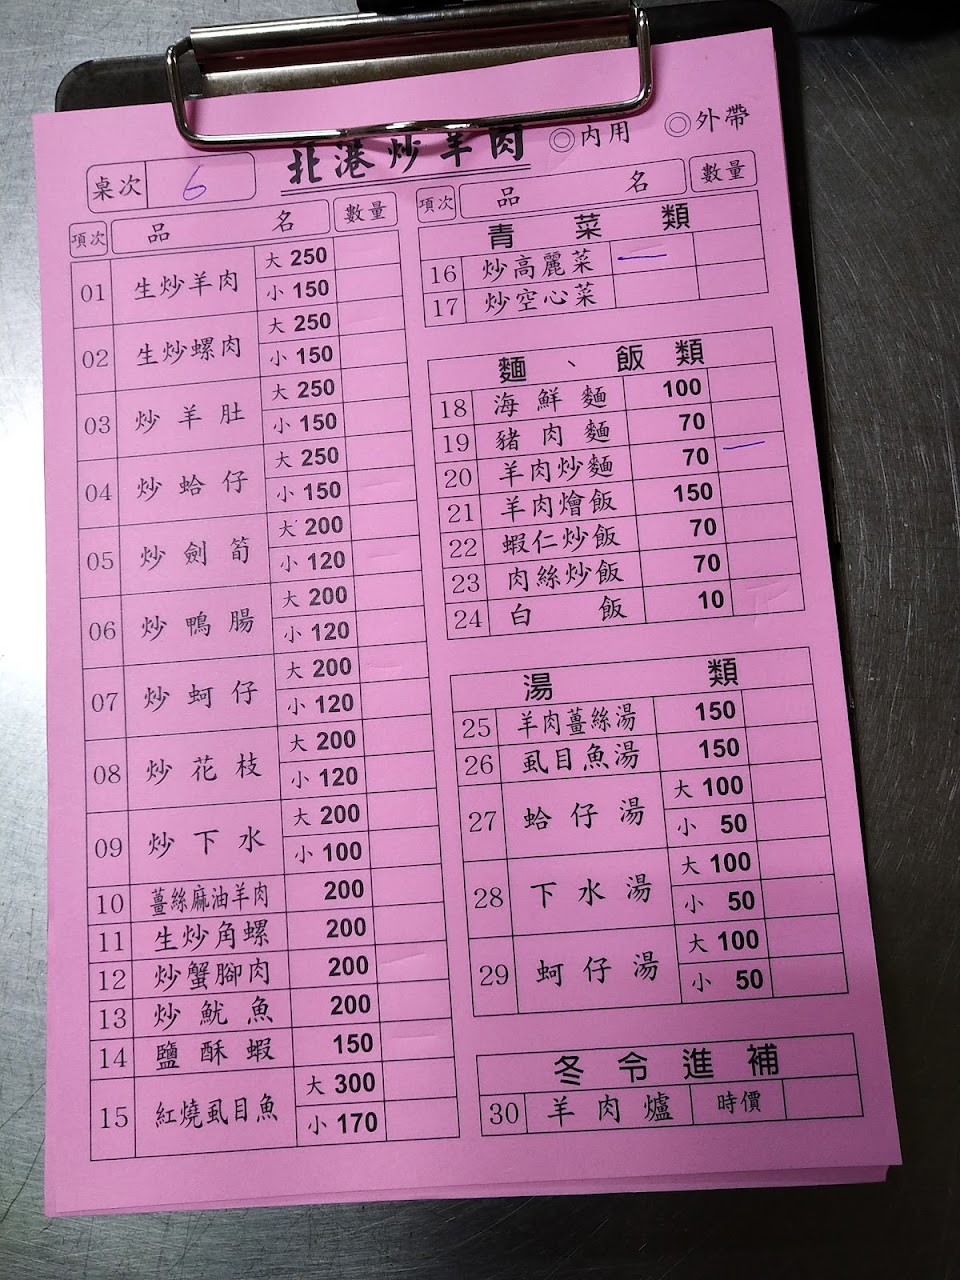 北港炒羊肉 ◎內用 ◎外帶
桌次 6
項次 品名 數量
01 生炒羊肉 大 250
小 150
02 生炒螺肉 大 250
小 150
03 炒羊肚 大 250
小 150
04 炒蛤仔 大 250
小 150
05 炒劍筍 大 200
小 120
06 炒鴨腸 大 200
小 120
07 炒蚵仔 大 200
小 120
08 炒花枝 大 200
小 120
09 炒下水 大 200
小 100
10 薑絲麻油羊肉 200
11 生炒角螺 200
12 炒蟹腳肉 200
13 炒魷魚 200
14 鹽酥蝦 150
15 紅燒虱目魚 大 300
小 170
項次 品名 數量
青菜類
16 炒高麗菜 一
17 炒空心菜
麵、飯類
18 海鮮麵 100
19 豬肉麵 70
20 羊肉炒麵 70 一
21 羊肉燴飯 150
22 蝦仁炒飯 70
23 肉絲炒飯 70
24 白飯 10
湯類
25 羊肉薑絲湯 150
26 虱目魚湯 150
27 蛤仔湯 大 100
小 50
28 下水湯 大 100
小 50
29 蚵仔湯 大 100
小 50
冬令進補
30 羊肉爐 時價